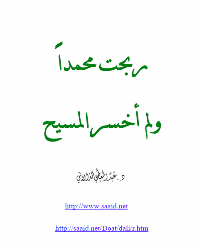 ربحت محمداً
ولم أخسر المسيح
د. عبد المعطي الدالاتي
http://www.saaid.net
http://saaid.net/Doat/dali/r.htm